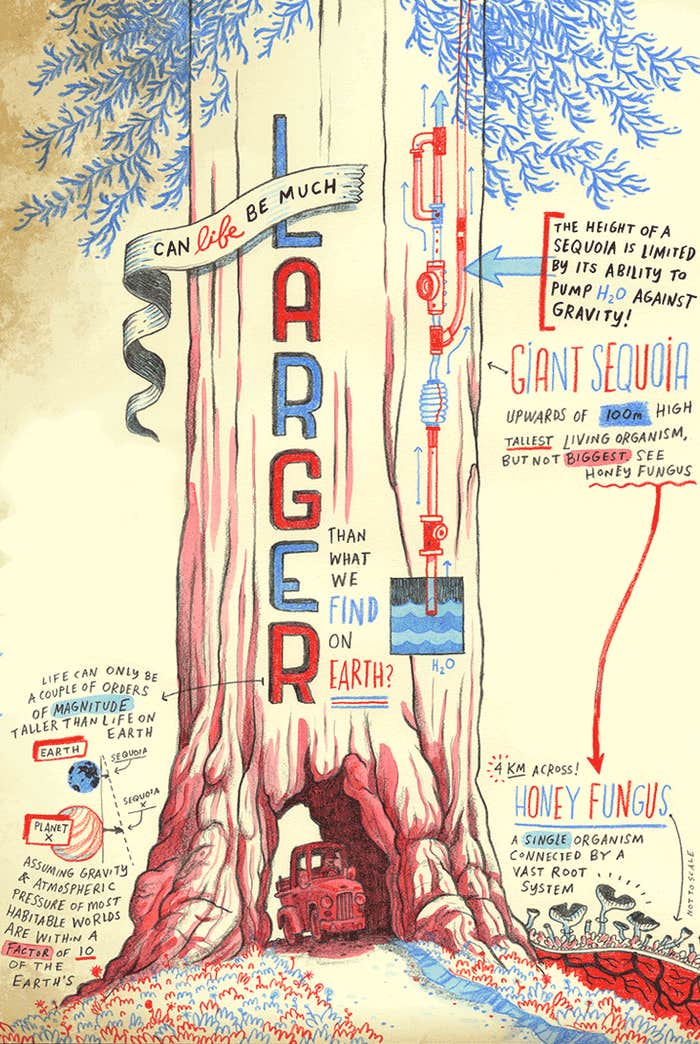 CAN life BE MUCH
LARGER
THAN
WHAT
WE
FIND
ON
EARTH?
THE HEIGHT OF A
SEQUOIA IS LIMITED
BY ITS ABILITY TO
PUMP H₂O AGAINST
GRAVITY!
GIANT SEQUOIA
UPWARDS OF 100m HIGH
TALLEST LIVING ORGANISM,
BUT NOT BIGGEST. SEE
HONEY FUNGUS
H₂O
LIFE CAN ONLY BE
A COUPLE OF ORDERS
OF MAGNITUDE
TALLER THAN LIFE ON
EARTH
EARTH
SEQUOIA
SEQUOIA
X
PLANET
X
ASSUMING GRAVITY
& ATMOSPHERIC
PRESSURE OF MOST
HABITABLE WORLDS
ARE WITHIN A
FACTOR OF 10
OF THE
EARTH'S
4 KM ACROSS!
HONEY FUNGUS
A SINGLE ORGANISM
CONNECTED BY A
VAST ROOT
SYSTEM
NOT TO SCALE